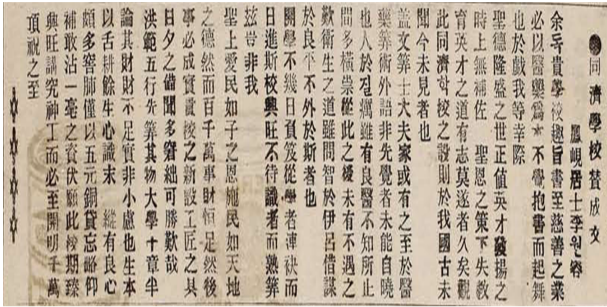 同濟學校賛成文
鳳峴居士李원容
余독貴學校趣旨書至慈善之業
必以醫藥爲本不覺抱書而起舞
也於戱我等幸際
聖德隆盛之世正値英才發揚之
時上無補佐 聖恩之策下失敎
育英才之道有志莫遂者久矣觀
此同濟학校之設則於我國古未
聞今未見者也
盖文筭士大夫家或有之至於醫
藥筭術外語非先覺者未能自曉
也人於질癘雖有良醫不知所止
間多橫祟從此之後未有不遇之
歎衛生之道雖問智於伊呂借謀
於良平不外於斯者也
開學不幾日負笈從學者連袂而
日進斯校興旺不待識者而熟筭
玆豈非我
聖上愛民如子之恩施民如天地
之德然而百千萬事財恒足然後
事必成實貴校之新設工匠之具
日夕之備聞多窘絀可勝歎哉
洪範五行先筭其物大學十章半
論其財財不足實非小慮也生本
以舌耕餘生心識末 維有良心
頗多窘肺僅以五元銅貨忘略仰
補敢沾一毫之資伏願此校期臻
興旺講究神工而必至開明千萬
頂祝之至